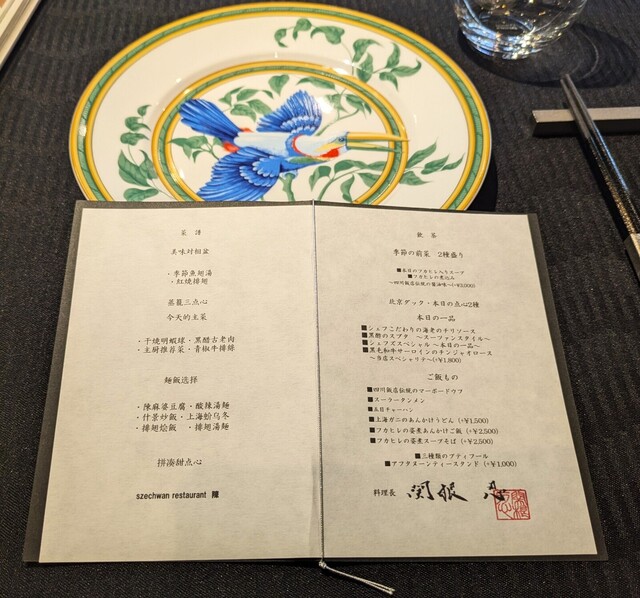 菜 譜
美味対相盆
・季節魚翅湯
・紅焼排翅
蒸籠三点心
今天的主菜
・干焼明蝦球・黒醋古老肉
・主厨推荐菜・青椒牛排絲
麺飯选择
・陳麻婆豆腐・酸辣湯麺
・什景炒飯・上海蛤乌冬
・排翅烩飯 ・排翅湯麺
拼湊甜点心
szechwan restaurant 陳
飲 茶
季節の前菜 2種盛り
■本日のフカヒレ入りスープ
■フカヒレの煮込み
～四川飯店伝統の醤油味～(+¥3,000)
北京ダック・本日の点心2種
本日の一品
■シェフこだわりの海老のチリソース
■黒酢のスブタ ～スーファンスタイル～
■シェフズスペシャル ～本日の一品～
■黒毛和牛サーロインのチンジャオロース
～当店スペシャリテ～(+¥1,800)
ご飯もの
■四川飯店伝統のマーボードウフ
■スーラータンメン
■五目チャーハン
■上海ガニのあんかけうどん (+¥1,500)
■フカヒレの姿煮あんかけご飯 (+¥2,500)
■フカヒレの姿煮スープそば (+¥2,500)
■三種類のプティフール
■アフタヌーンティースタンド (+¥1,000)
料理長 関根